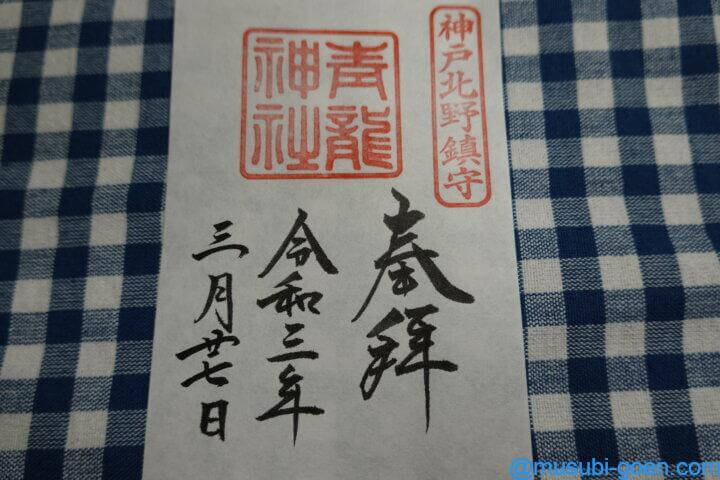 神戸北野鎮守
青龍
神社
奉拜
令和三年
三月廿七日
@musubi-goen.com